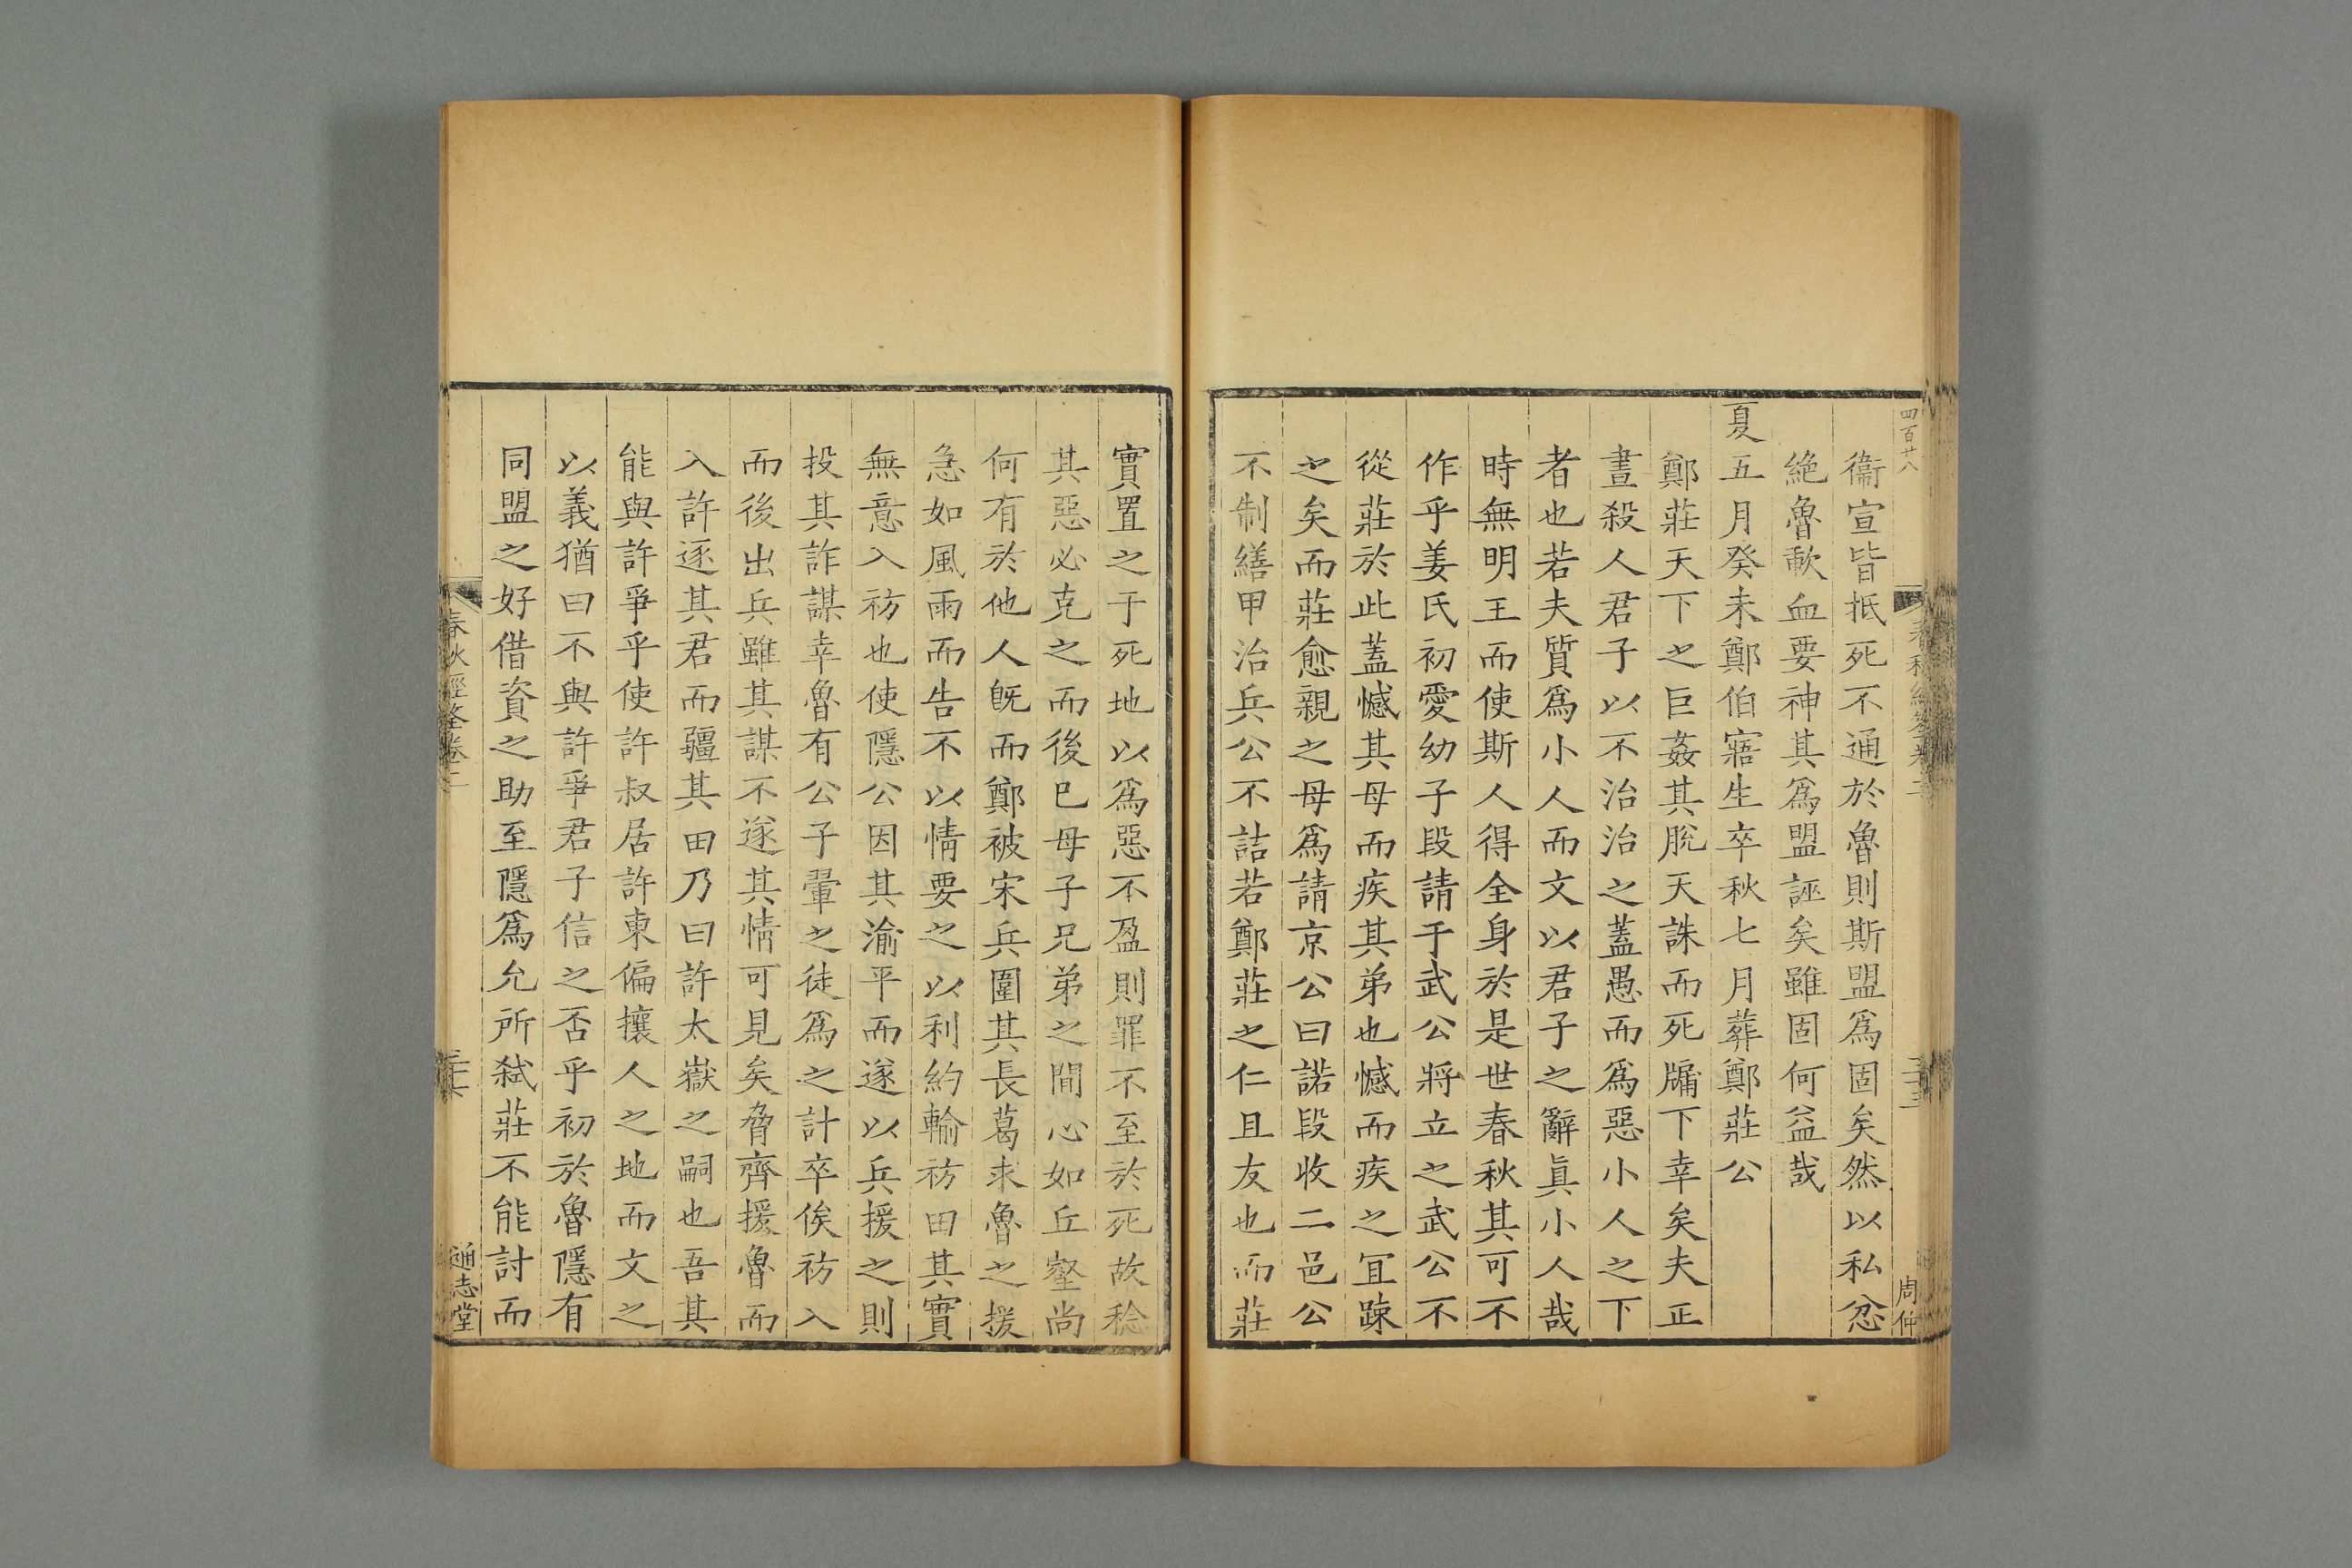 四百廿八
周仲
衞宣皆抵死不通於魯則斯盟爲固矣然以私忿
絶魯歃血要神其爲盟誣矣雖固何益哉
夏五月癸未鄭伯寤生卒秋七月葬鄭莊公
鄭莊天下之巨姦其脫天誅而死牖下幸矣夫正
晝殺人君子以不治治之蓋愚而爲惡小人之下
者也若夫質爲小人而文以君子之辭眞小人哉
時無明王而使斯人得全身於是世春秋其可不
作乎姜氏初愛幼子段請于武公將立之武公不
從莊於此蓋憾其母而疾其弟也憾而疾之宜踈
之矣而莊愈親之母爲請京公曰諾段收二邑公
不制繕甲治兵公不詰若鄭莊之仁且友也而莊
實置之于死地以爲惡不盈則罪不至於死故稔
其惡必克之而後已母子兄弟之間心如丘壑尚
何有於他人旣而鄭被宋兵圍其長葛求魯之援
急如風雨而告不以情要之以利約輸祊田其實
無意入祊也使隱公因其渝平而遂以兵援之則
投其詐謀幸魯有公子翬之徒爲之計卒俟祊入
而後出兵雖其謀不遂其情可見矣脅齊援魯而
入許逐其君而疆其田乃曰許太嶽之嗣也吾其
能與許爭乎使許叔居許東偏攘人之地而文之
以義猶曰不與許爭君子信之否乎初於魯隱有
同盟之好借資之助至隱爲允所弑莊不能討而
春秋經筌卷二
通志堂